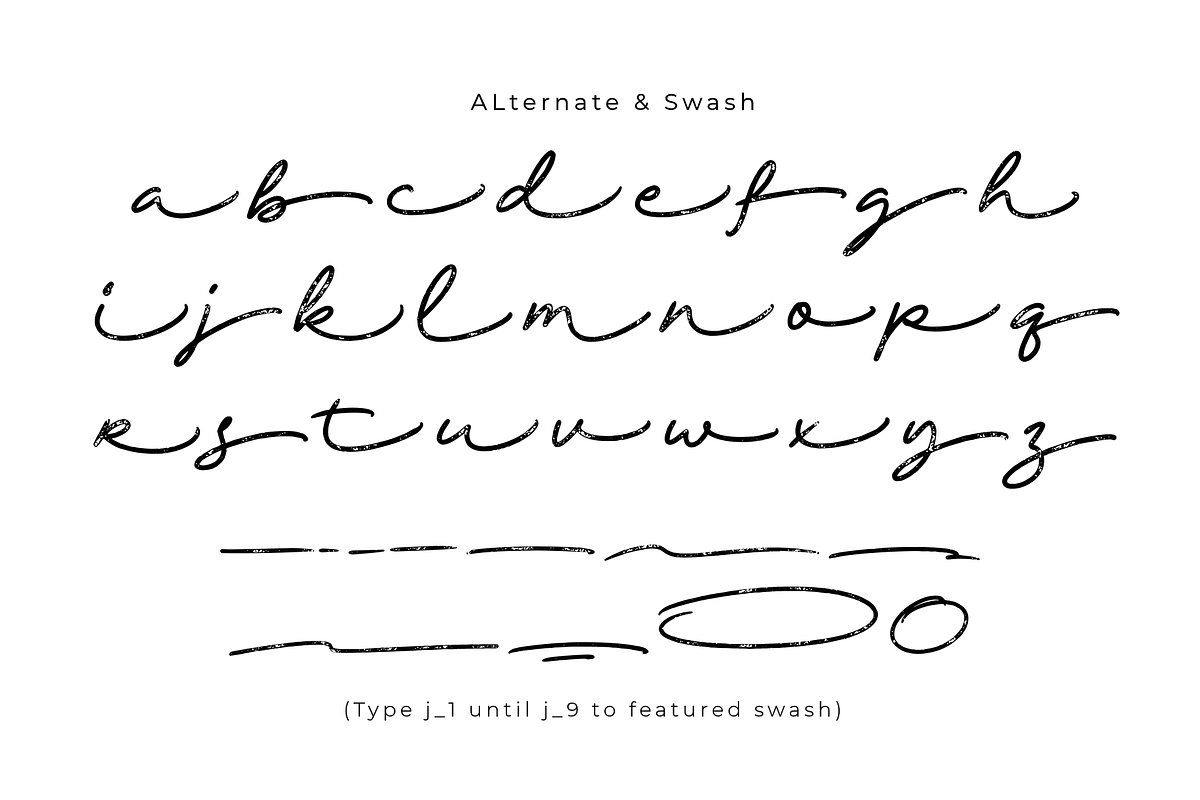 ALternate & Swash
a b c d e f g h
i j k l m n o p q
r s t u v w x y z
(Type j_1 until j_9 to featured swash)